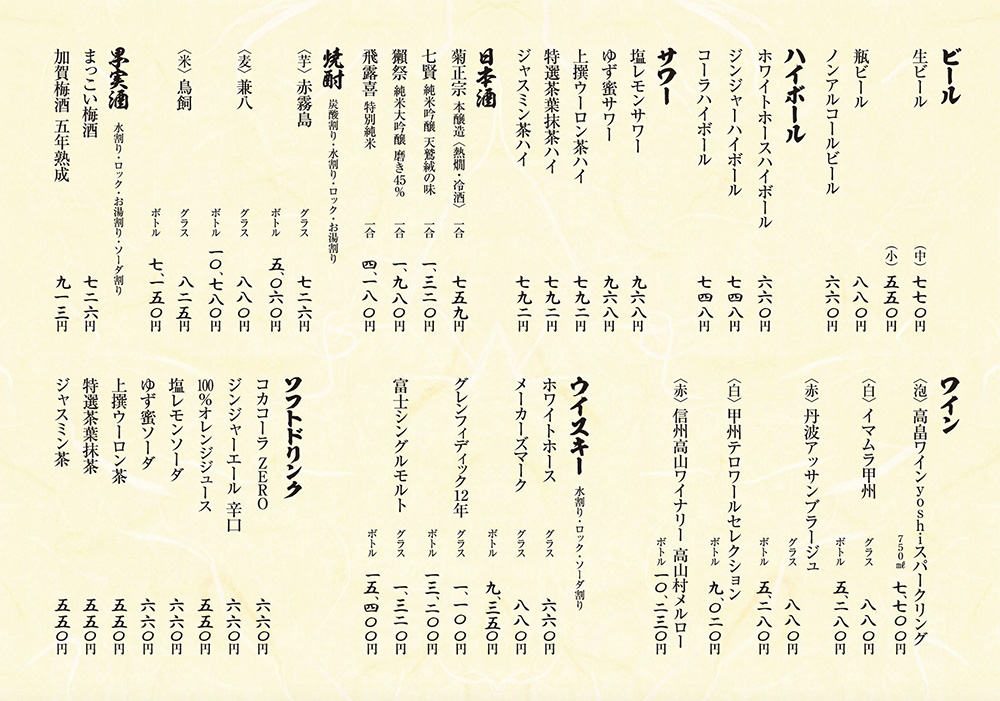 ビール
生ビール （中） 七七〇円
（小） 五五〇円
瓶ビール 八八〇円
ノンアルコールビール 六六〇円
ハイボール
ホワイトホースハイボール 六六〇円
ジンジャーハイボール 七四八円
コーラハイボール 七四八円
サワー
塩レモンサワー 九六八円
ゆず蜜サワー 九六八円
上撰ウーロン茶ハイ 七九二円
特選茶葉抹茶ハイ 七九二円
ジャスミン茶ハイ 七九二円
日本酒
菊正宗 本醸造〈熱燗・冷酒〉 一合 七五九円
七賢 純米吟醸 天鷲絨の味 一合 一、三二〇円
獺祭 純米大吟醸 磨き45% 一合 一、九八〇円
飛露喜 特別純米 一合 四、一八〇円
焼酎 炭酸割り・水割り・ロック・お湯割り
〈芋〉赤霧島 グラス 七二六円
ボトル 五、〇六〇円
〈麦〉兼八 グラス 八八〇円
ボトル 一〇、七八〇円
〈米〉鳥飼 グラス 八二五円
ボトル 七、一五〇円
果実酒 水割り・ロック・お湯割り・ソーダ割り
まっこい梅酒 七二六円
加賀梅酒 五年熟成 九一三円
ワイン
〈泡〉高畠ワインyoshiスパークリング
750㎖ 七、七〇〇円
〈白〉イマムラ甲州 グラス 八八〇円
ボトル 五、二八〇円
〈赤〉丹波アッサンブラージュ
グラス 八八〇円
ボトル 五、二八〇円
〈白〉甲州テロワールセレクション
ボトル 九、〇二〇円
〈赤〉信州高山ワイナリー 高山村メルロー
ボトル 一〇、二三〇円
ウイスキー 水割り・ロック・ソーダ割り
ホワイトホース グラス 六六〇円
メーカーズマーク グラス 八八〇円
ボトル 九、三五〇円
グレンフィディック12年 グラス 一、一〇〇円
ボトル 一三、二〇〇円
富士シングルモルト グラス 一、三二〇円
ボトル 一五、四〇〇円
ソフトドリンク
コカコーラ ZERO 六六〇円
ジンジャーエール 辛口 六六〇円
100%オレンジジュース 五五〇円
塩レモンソーダ 六六〇円
ゆず蜜ソーダ 六六〇円
上撰ウーロン茶 五五〇円
特選茶葉抹茶 五五〇円
ジャスミン茶 五五〇円